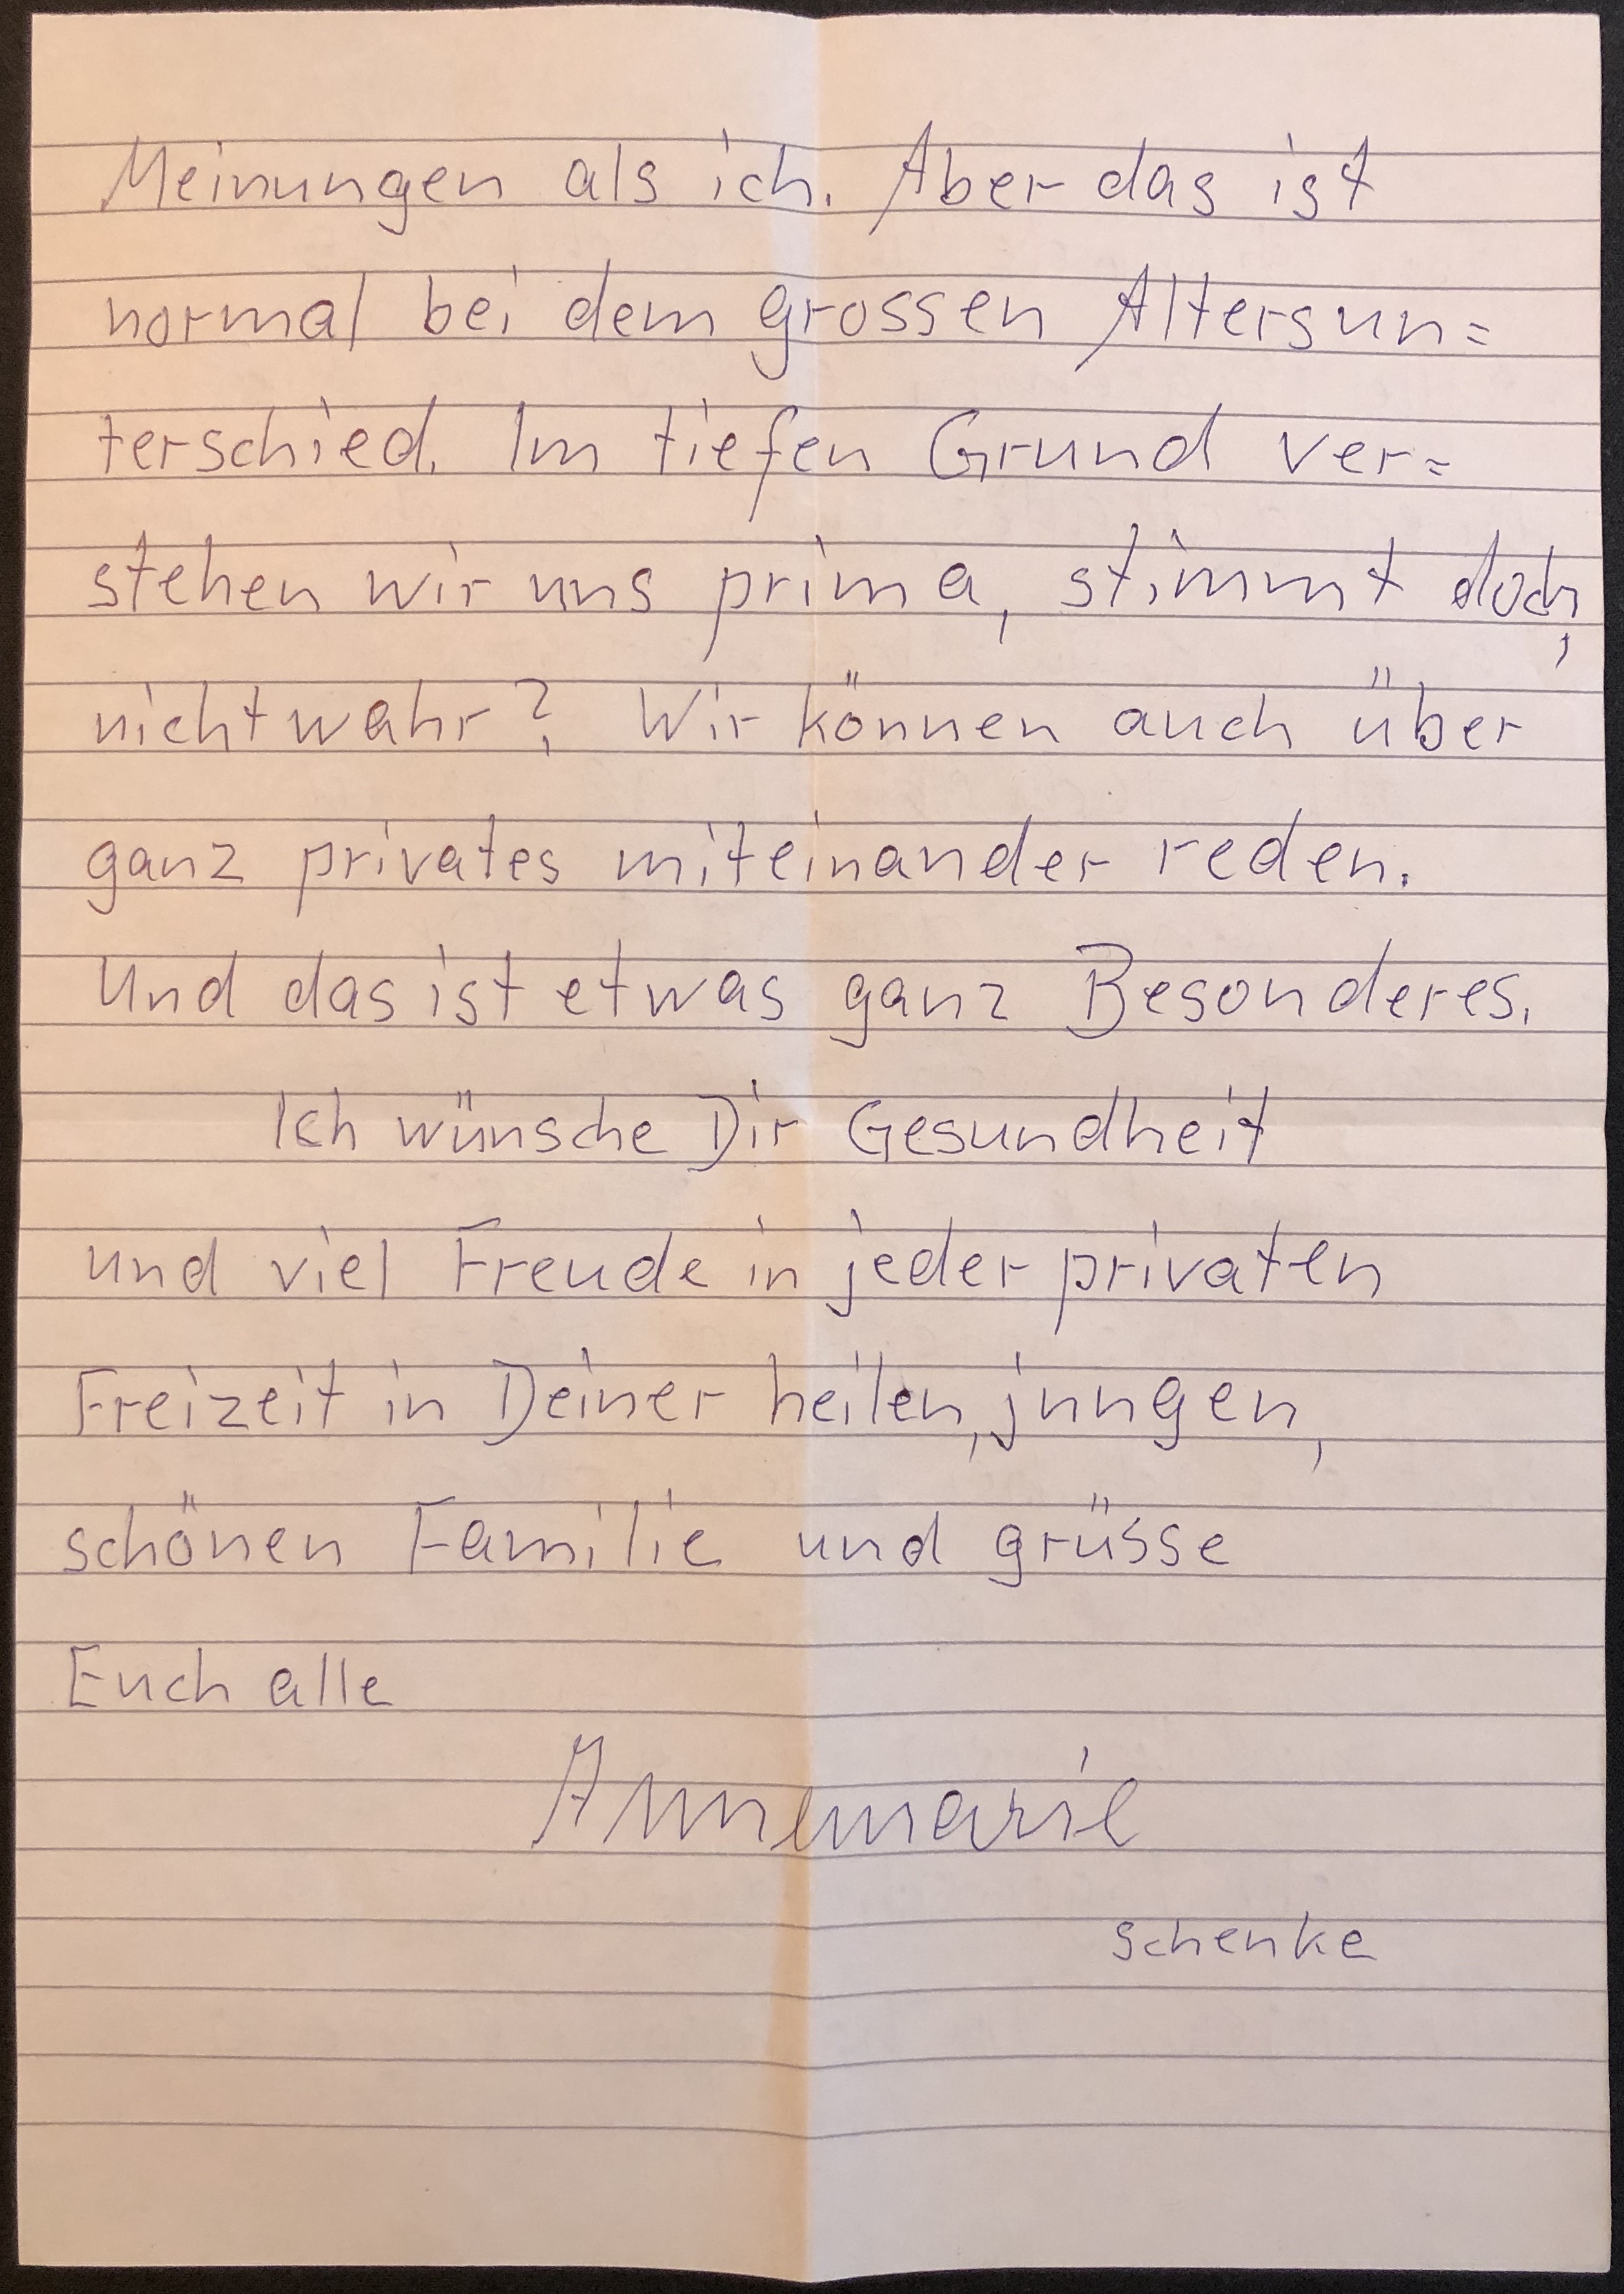 Meinungen als ich. Aber das ist
normal bei dem grossen Altersun=
terschied. Im tiefen Grund ver=
stehen wir uns prima, stimmt doch,
nichtwahr? Wir können auch über
ganz privates miteinander reden.
Und das ist etwas ganz Besonderes.
Ich wünsche Dir Gesundheit
und viel Freude in jeder privaten
Freizeit in Deiner heilen, jungen,
schönen Familie und grüsse
Euch alle
Annemarie
Schenke